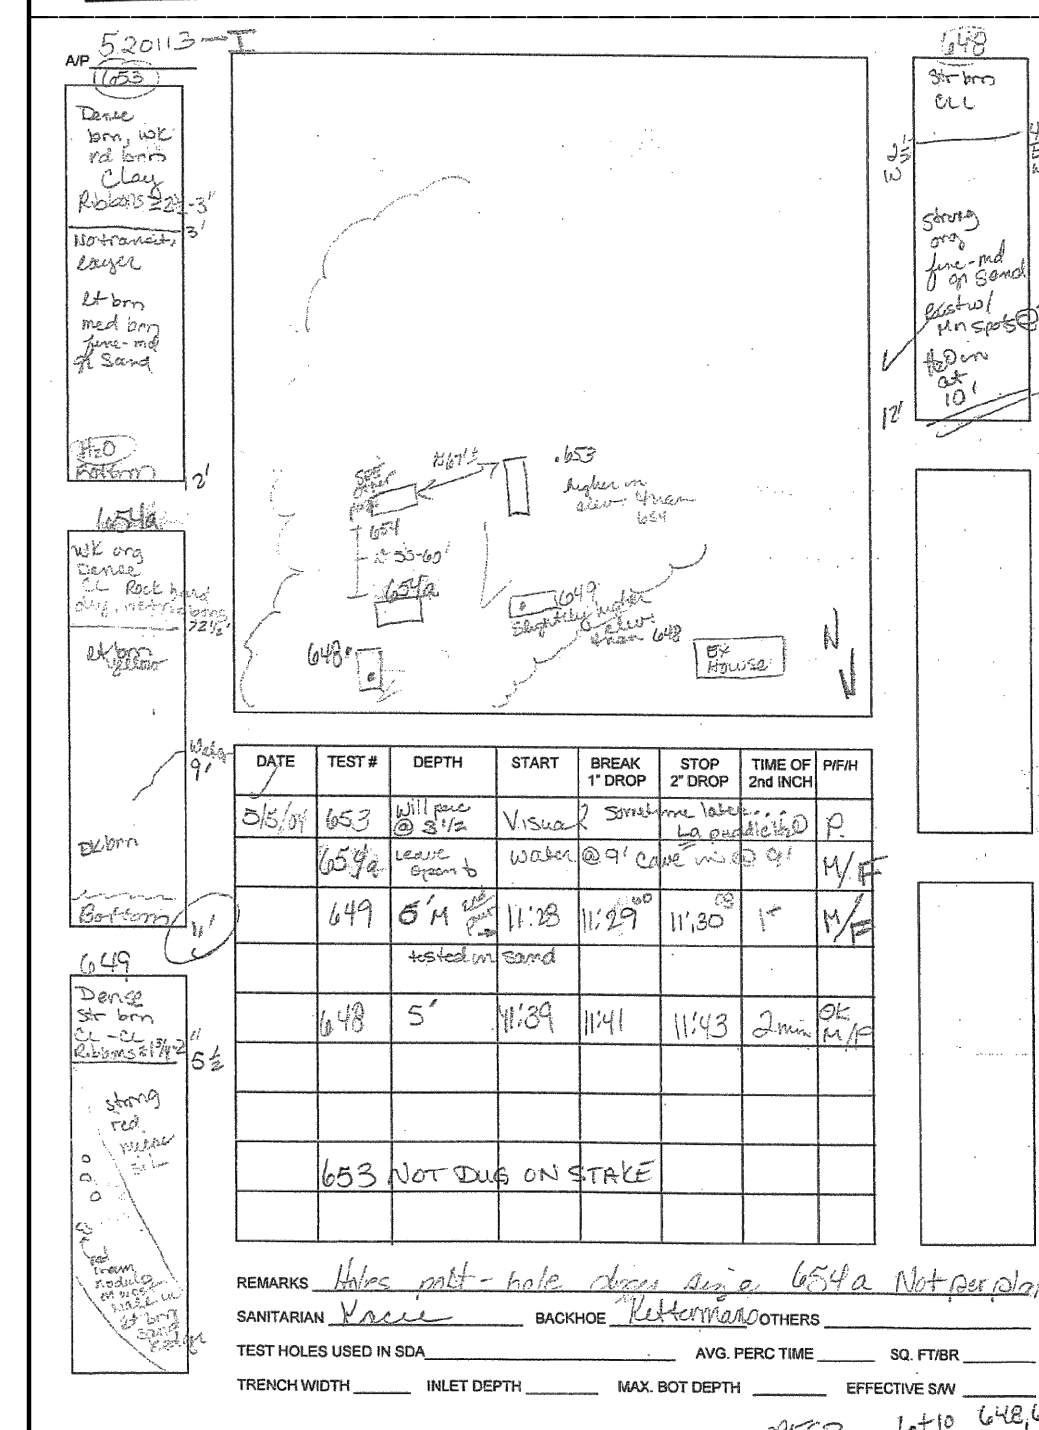 A/P 520113-I
653
Dense
brn, wk
rd brn
Clay
Ribbons ≥ 2½-3"
3'
No transit.
layer
lt brn
med brn
fine-md
gr Sand
H2O
Bottom
12'
654a
WK org
Dense
CL Rock hard
dry, not ribbons
72½'
lt brn
yellow
Water
9'
DK brn
Bottom
11'
649
Dense
Str brn
CL-CL
Ribbons ≥ 1¾-2"
5½
strong
red
red
nodules
lt brn
sand
648
Str brn
CLL
strong
org
fine-md
gr Sand
last w/
Mn spots @
H2O in
at
10'
12'
see
other
page
≈67'±
.653
higher in
elev. than
654
654
≈ 55-60'
654a
649
Slightly higher
elev.
than 648
648
EX
HOUSE
N
DATE TEST # DEPTH START BREAK 1" DROP STOP 2" DROP TIME OF 2nd INCH P/F/H
5/5/04 653 Will perc @ 3 1/2 Visual sometime later... P.
654a leave open to water @ 9' cave in @ 9' M/F
649 5'M 2nd 11:28 11:29 11:30 1+ M/F
tested in sand
648 5' 11:39 11:41 11:43 2 min OK M/P
653 NOT DUG ON STAKE
REMARKS Holes size 654a Not per plan
SANITARIAN BACKHOE Ketterman OTHERS
TEST HOLES USED IN SDA AVG. PERC TIME SQ. FT/BR
TRENCH WIDTH INLET DEPTH MAX. BOT DEPTH EFFECTIVE S/W
Lot 10 648,6